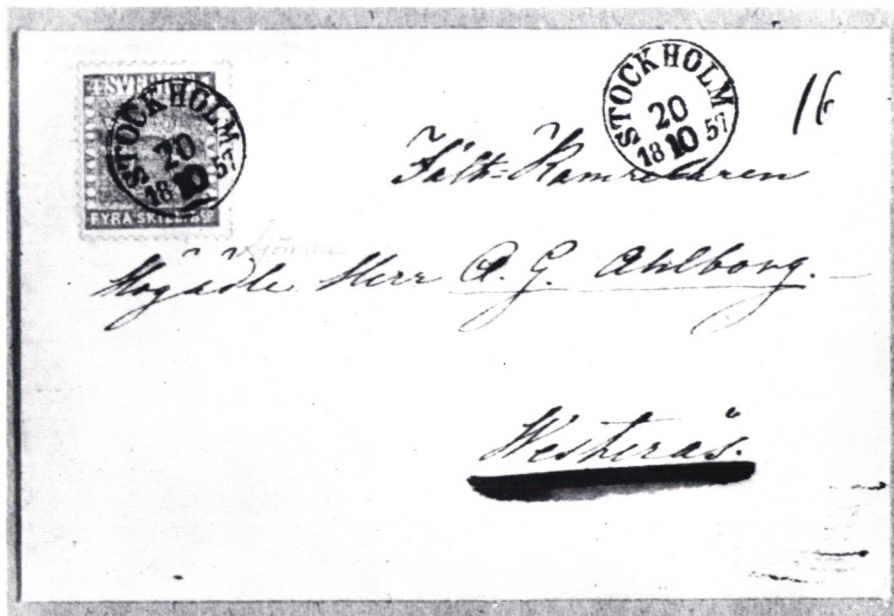 4 SVERIGE 4
STOCKHOLM
20
18 10 57
FYRA SKILL. BCO
STOCKHOLM
20
18 10 57
16
Fält-Kamreraren
Högädle Herr A. G. Ahlborg.
Westerås.